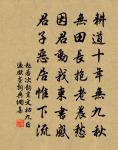 耕道十年無九秋
無田長抱老農愁
因君動我束書感
君子惡居惟下流